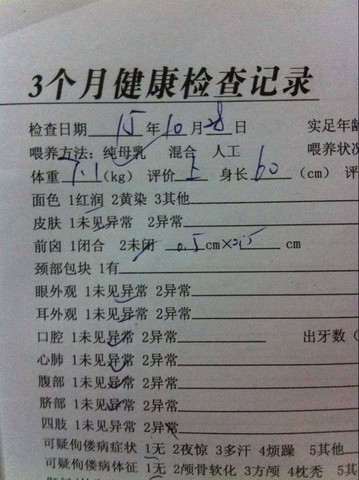 3个月健康检查记录
检查日期 15 年 10 月 28 日 实足年龄
喂养方法：纯母乳 混合 人工 喂养状况
体重 7.1 (kg) 评价 上 身长 60 (cm) 评
面色 1红润 2黄染 3其他
皮肤 1未见异常 2异常
前囟 1闭合 2未闭 0.5cm×0.5 cm
颈部包块 1有
眼外观 1未见异常 2异常
耳外观 1未见异常 2异常
口腔 1未见异常 2异常 出牙数（
心肺 1未见异常 2异常
腹部 1未见异常 2异常
脐部 1未见异常 2异常
四肢 1未见异常 2异常
可疑佝偻病症状 1无 2夜惊 3多汗 4烦躁 5其他
可疑佝偻病体征 1无 2颅骨软化 3方颅 4枕秃 5其